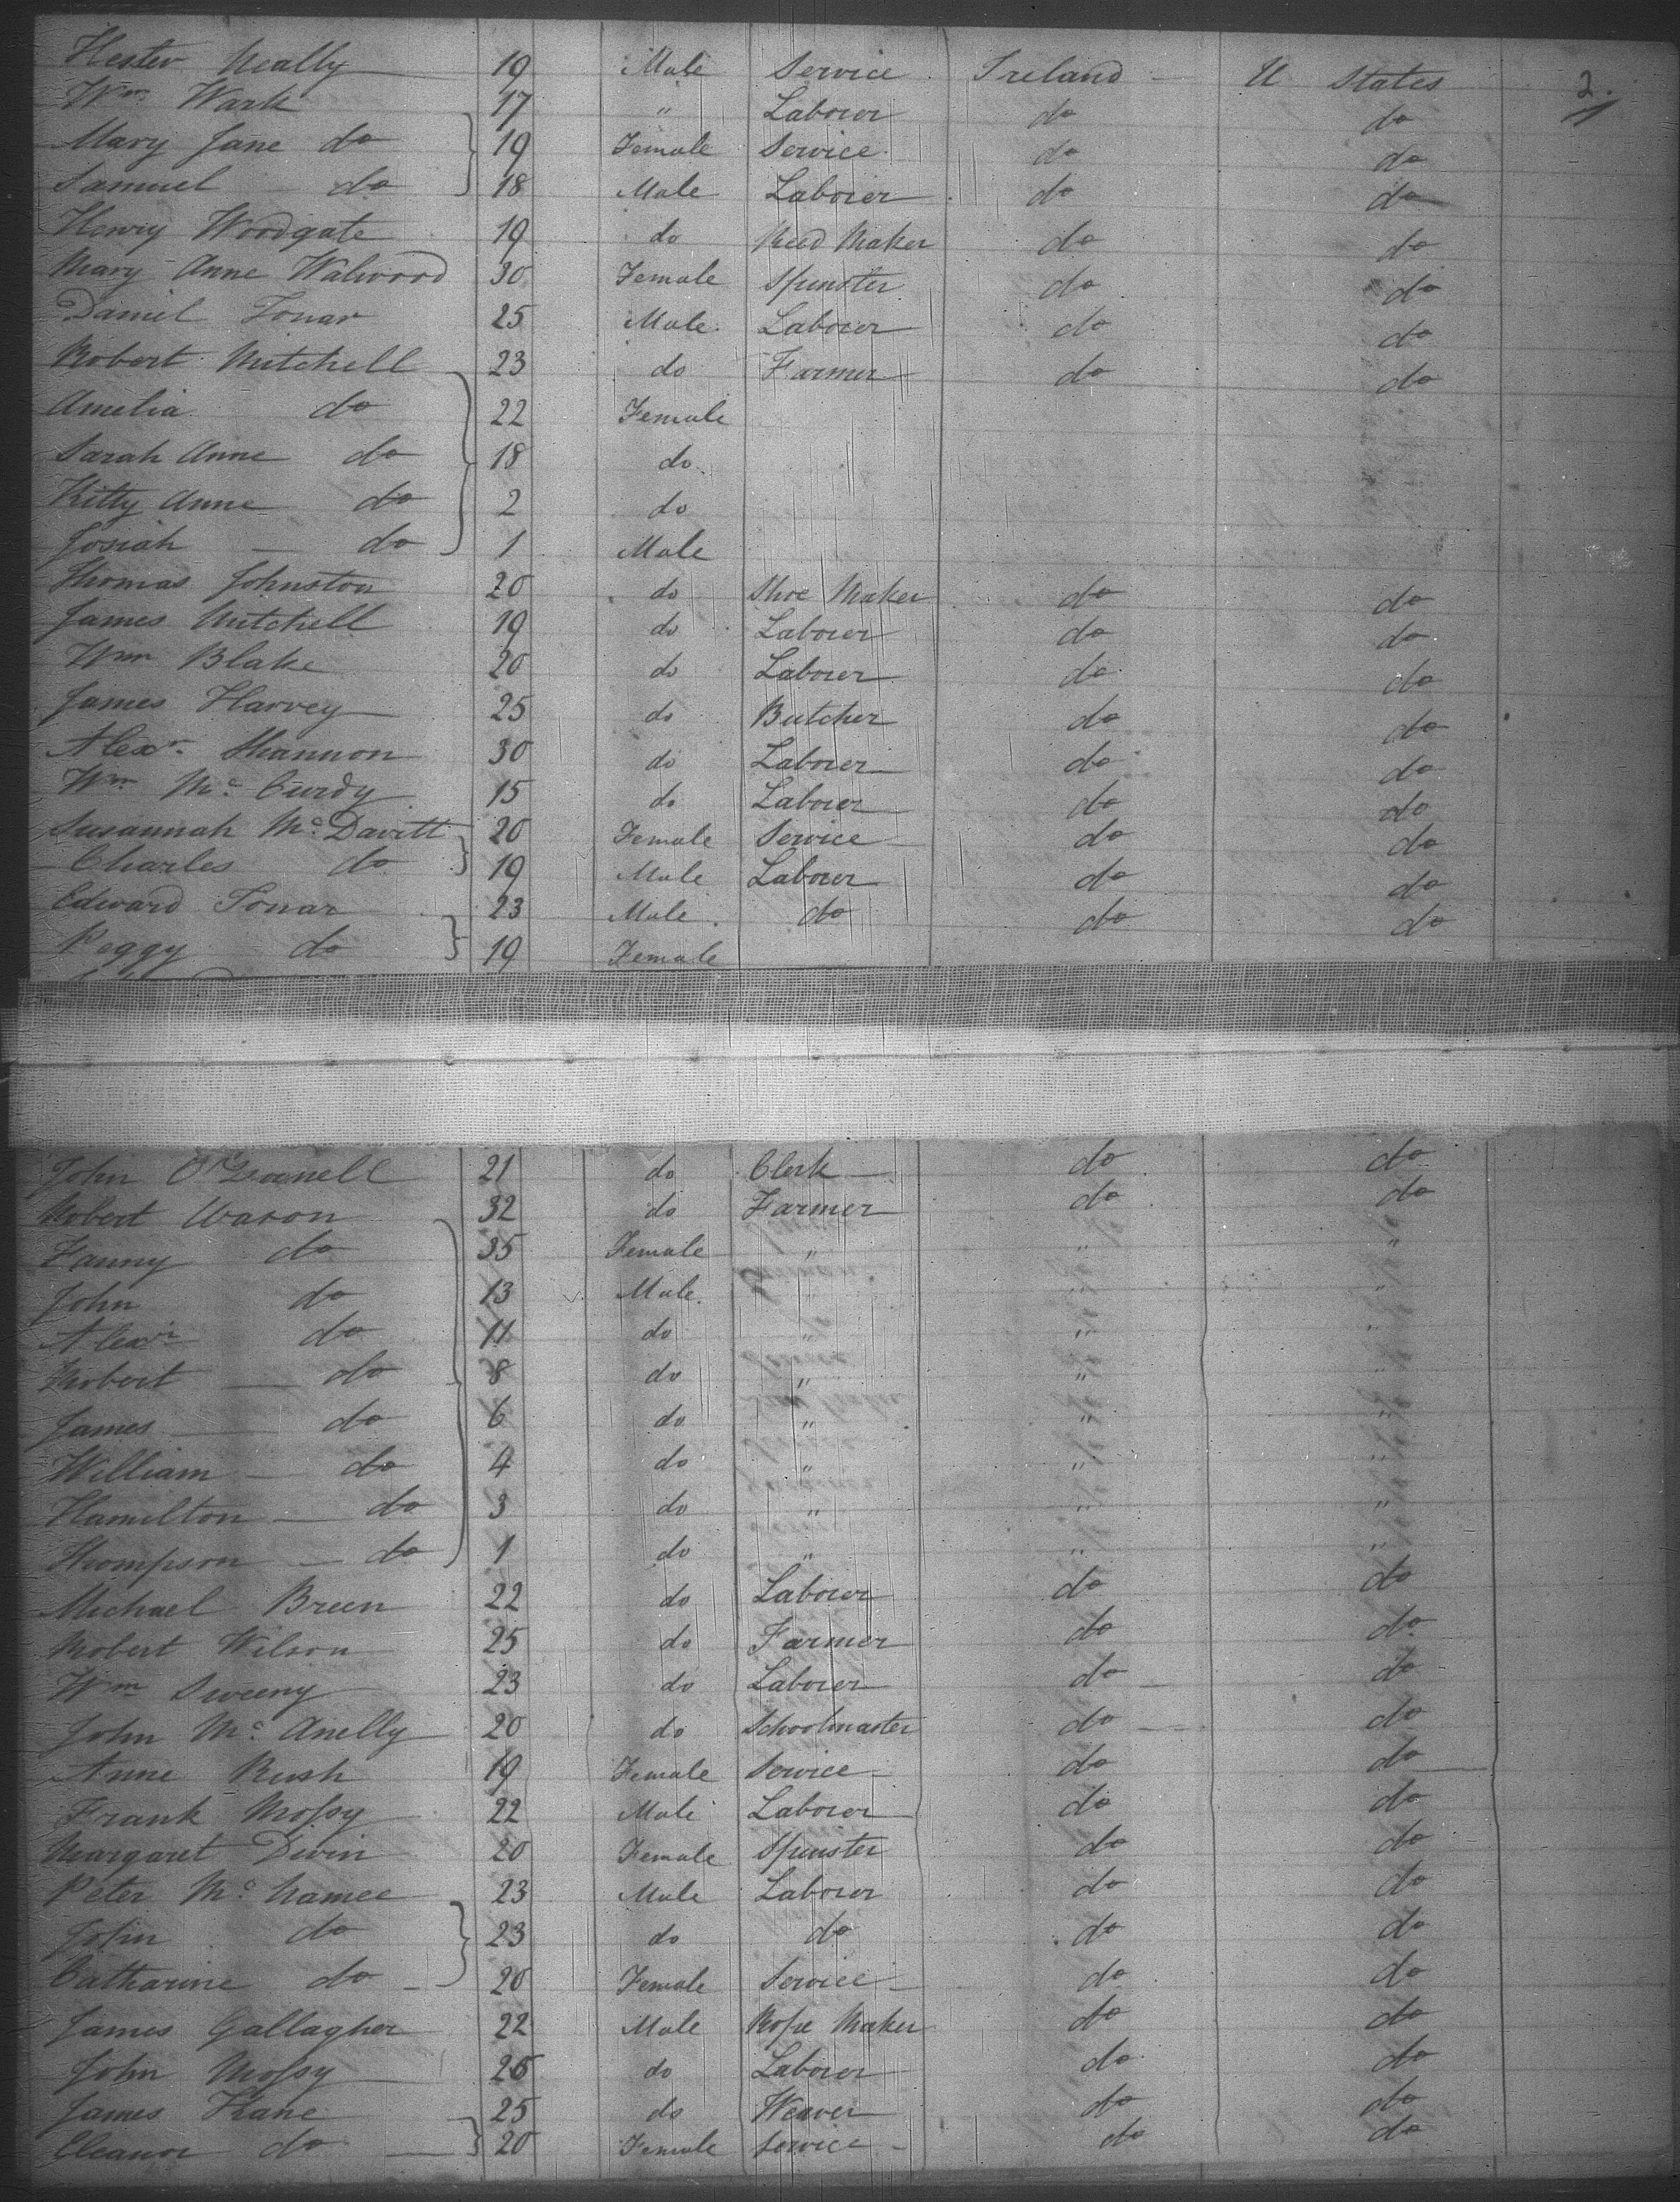 Hester Neally 19 Male Service Ireland U States 2.
Wm. Wark 17 " Laborer do do
Mary Jane do 19 Female Service do do
Samuel do 18 Male Laborer do do
Henry Woodgate 19 do Reed Maker do do
Mary Anne Walwood 30 Female Spinster do do
Daniel Tonar 25 Male Laborer do do
Robert Mitchell 23 do Farmer do do
Amelia do 22 Female
Sarah Anne do 18 do
Kitty Anne do 2 do
Josiah do 1 Male
Thomas Johnston 20 do Shoe Maker do do
James Mitchell 19 do Laborer do do
Wm Blake 20 do Laborer do do
James Harvey 25 do Butcher do do
Alexr. Shannon 30 do Laborer do do
Wm Mc. Curdy 15 do Laborer do do
Susannah Mc. Davitt 20 Female Service do do
Charles do 19 Male Laborer do do
Edward Tonar 23 Male do do do
Peggy do 19 Female
John O'Donnell 21 do Clerk do do
Robert 32 do Farmer do do
Fanny do 35 Female " " "
John do 13 Male " " "
Alexr do 11 do " " "
Robert do 8 do " " "
James do 6 do " " "
William do 4 do " " "
Hamilton do 3 do " " "
Thompson do 1 do " " "
Michael Breen 22 do Laborer do do
Robert Wilson 25 do Farmer do do
Wm Sweeny 23 do Laborer do do
John Mc. Anelly 20 do Schoolmaster do do
Anne Rush 19 Female Service do do
Frank Mossy 22 Male Laborer do do
Margaret Divin 20 Female Spinster do do
Peter Mc. Namee 23 Male Laborer do do
John do 23 do do do do
Catharine do 20 Female Service do do
James Gallagher 22 Male Rope Maker do do
John Mossy 26 do Laborer do do
James Kane 25 do Weaver do do
Eleanor do 20 Female Service do do